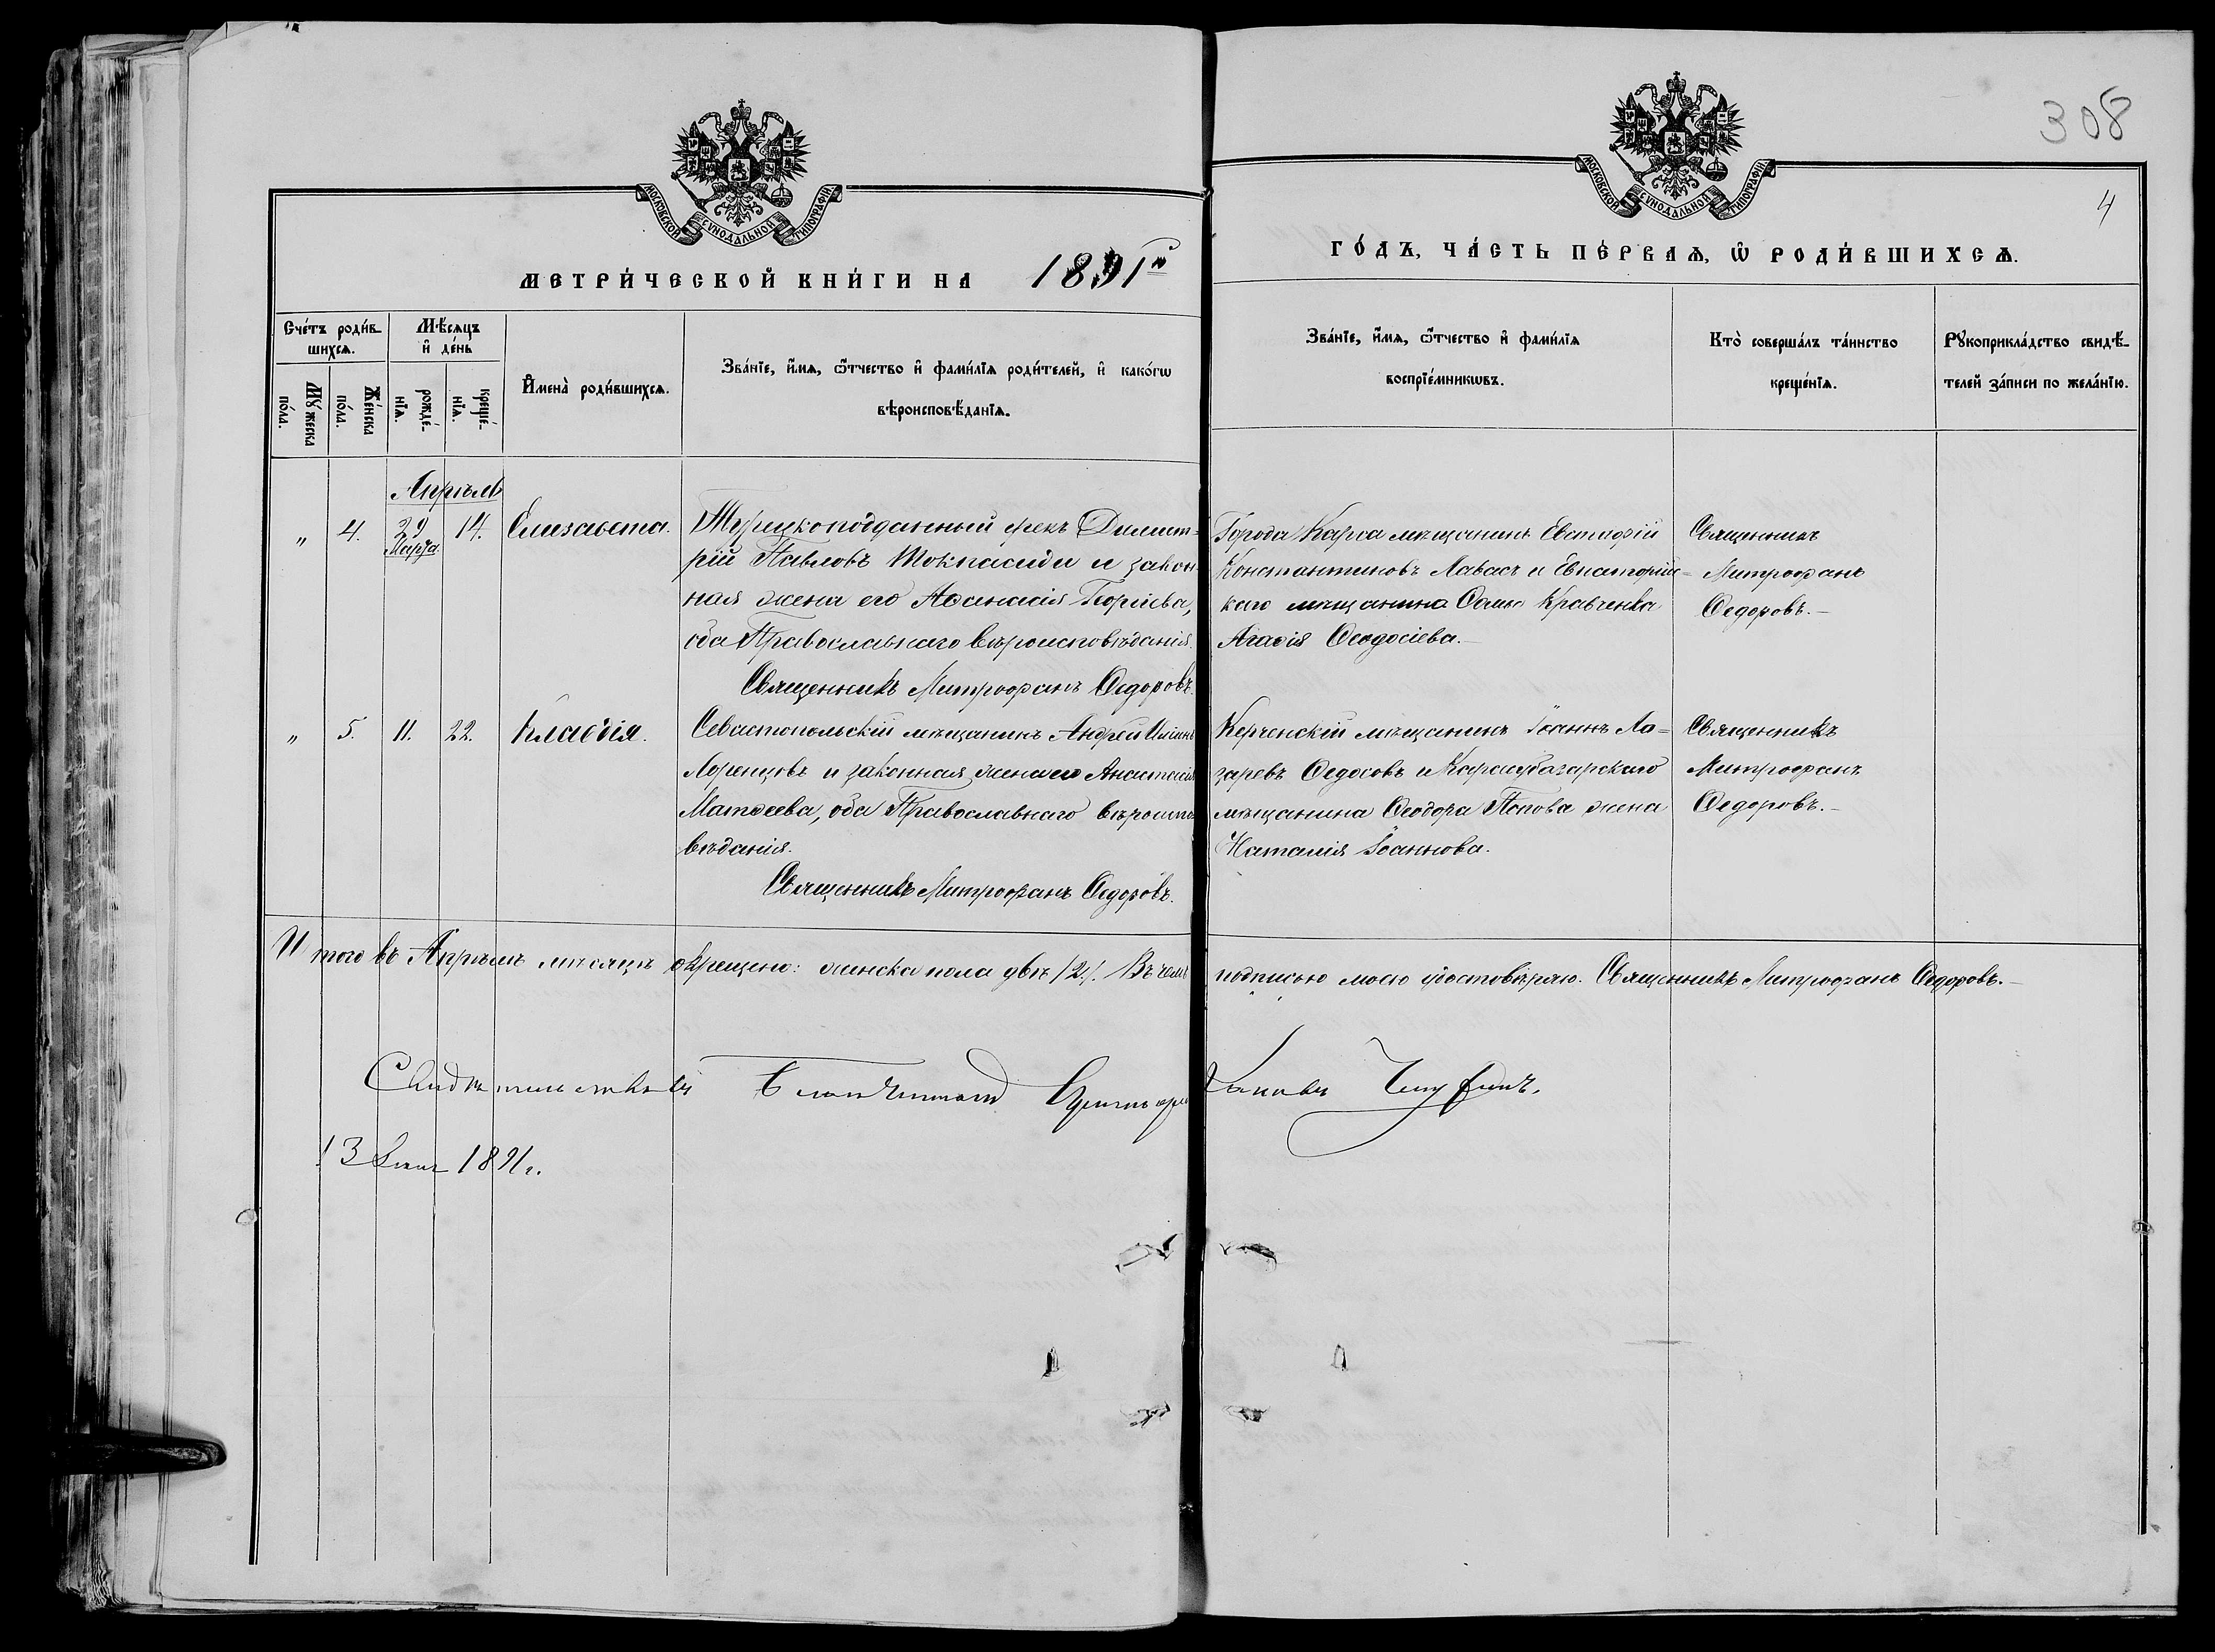 308
4
МОСКОВСКОЙ СѴНОДАЛЬНОЙ ТИПОГРАФІИ
МОСКОВСКОЙ СѴНОДАЛЬНОЙ ТИПОГРАФІИ
МЕТРИ́ЧЕСКОЙ КНИ́ГИ НА 1891й
ГО́ДЪ, ЧА́СТЬ ПЕ́РВАѦ, Ѡ҆ РОДИ́ВШИХСѦ.
Сче́тъ роди́в-
шихсѧ.
Мꙋ́жеска
по́ла.
Же́нска
по́ла.
Мѣ́сѧцъ
и҆ де́нь
рожде́-
нїѧ.
креще́-
нїѧ.
И҆мена̀ роди́вшихсѧ.
Зва́нїе, и҆́мѧ, ѻ҆́тчество и҆ фами́лїѧ роди́телей, и҆ како́гѡ
вѣроисповѣ́данїѧ.
Зва́нїе, и҆́мѧ, ѻ҆́тчество и҆ фами́лїѧ
воспрїе́мникѡвъ.
Кто̀ соверша́лъ та́инство
креще́нїѧ.
Рꙋкоприкла́дство свидѣ́-
телей за́писи по жела́нїю.
Апрѣль
" 4. 29 Марта 14. Елизавета.
Турецкоподданный грекъ Димит-
рій Павловъ Токпасиди и закон-
ная жена его Аѳанасія Георгіева,
оба Православнаго вѣроисповѣданія.
Священникъ Митрофанъ Ѳедоровъ.
Города Карса мѣщанинъ Евстафій
Константиновъ Лавасъ и Евпаторійс-
каго мѣщанина Ѳомы Кравченка
Агаѳія Ѳеодосіева.-
Священникъ
Митрофанъ
Ѳедоровъ.-
" 5. 11. 22. Клавдія.
Севастопольскій мѣщанинъ Андрей Иліинъ
Лоренцовъ и законная жена его Анастасія
Матѳеева, оба Православнаго вѣроиспо
вѣданія.
Священникъ Митрофанъ Ѳедоровъ.
Керченскій мѣщанинъ Іоаннъ Ла-
заревъ Ѳедосовъ и Карасубазарскаго
мѣщанина Ѳеодора Попова жена
Наталія Іоаннова.
Священникъ
Митрофанъ
Ѳедоровъ.-
Итого въ Апрѣлѣ мѣсяцѣ окрещено: женска пола двѣ /2/. Въ чемъ подписью моею удостовѣряю. Священникъ Митрофанъ Ѳедоровъ.-
13 1891 г.